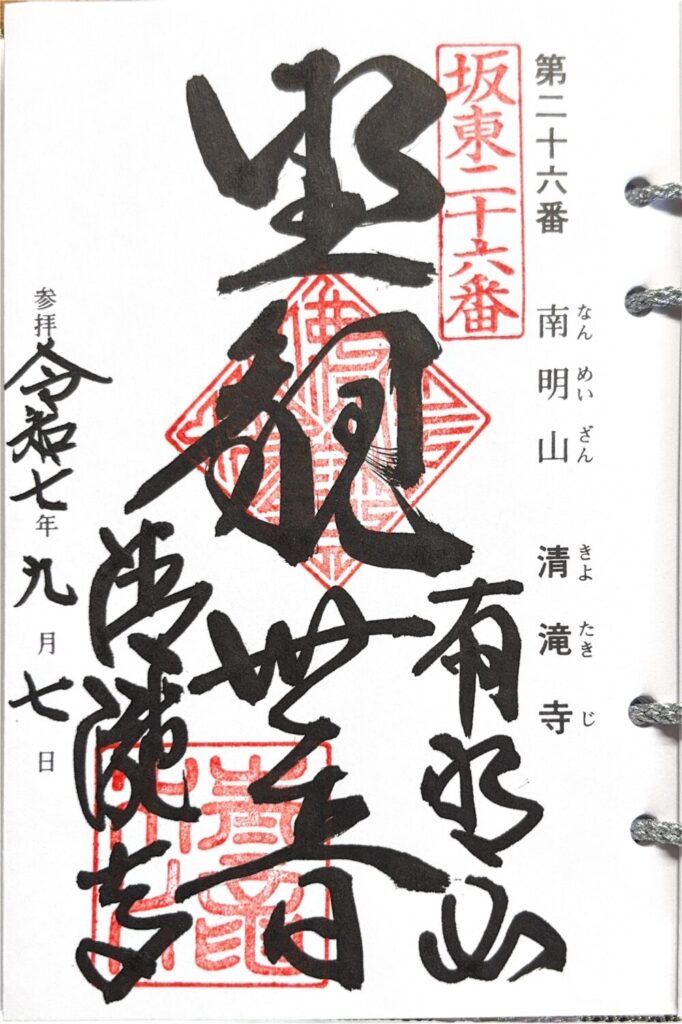 第二十六番 南明山 清滝寺
なん めい ざん きよ たき じ
坂東二十六番
南明山
聖観世音
清瀧寺
参拝 令和七年九月七日